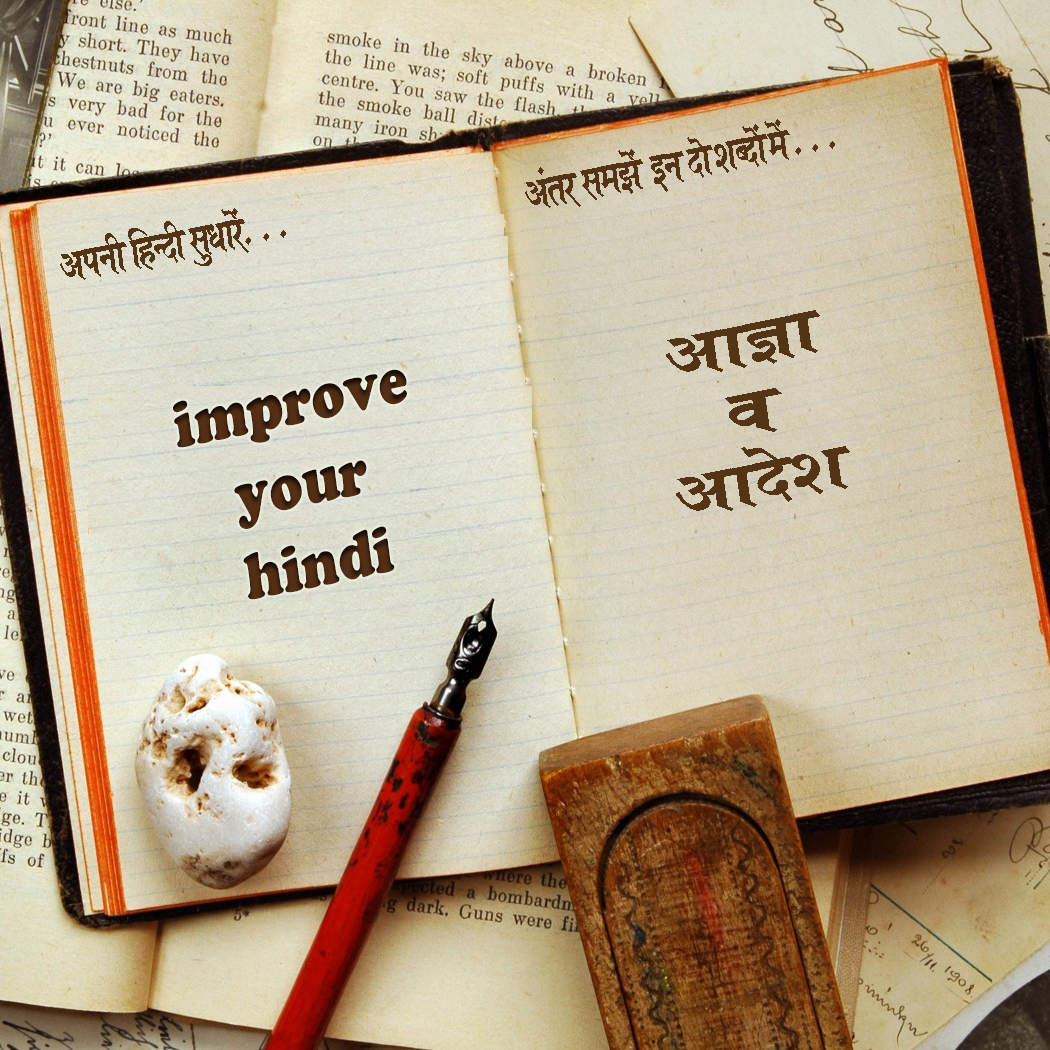 re else.'
front line as much
y short. They have
chestnuts from the
We are big eaters.
s very bad for the
u ever noticed the
?'
smoke in the sky above a broken
the line was; soft puffs with a
centre. You saw the flash,
the smoke ball
many iron
on
अपनी हिन्दी सुधारें. . .
improve
your
hindi
अंतर समझें इन दो शब्दों में . . .
आज्ञा
व
आदेश
where the
a bombardm
dark. Guns were
5*
26/11. 1908.